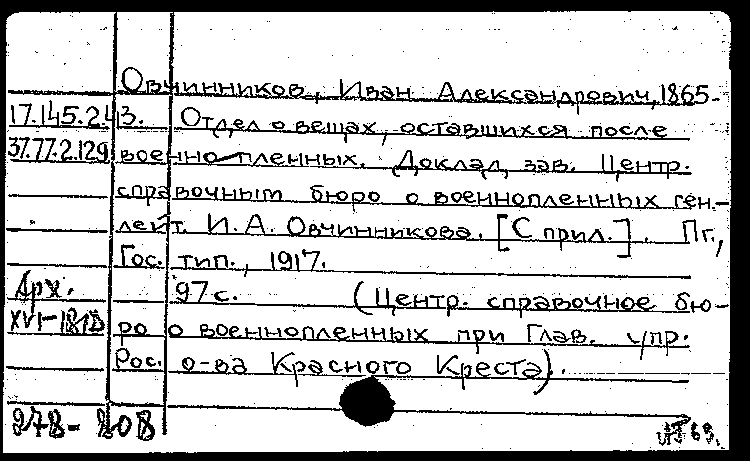 Овчинников, Иван Александрович, 1865-
17.145.2.43. Отдел о вещах, оставшихся после
37.77.2.129 военно-пленных. Доклад зав. Центр.
справочным бюро о военнопленных ген.-
лейт. И. А. Овчинникова. [С прил.]. Пг.,
Гос. тип., 1917.
Арх. 97 с. (Центр. справочное бю-
ро о военнопленных при Глав. упр.
Рос. о-ва Красного Креста).
278-208